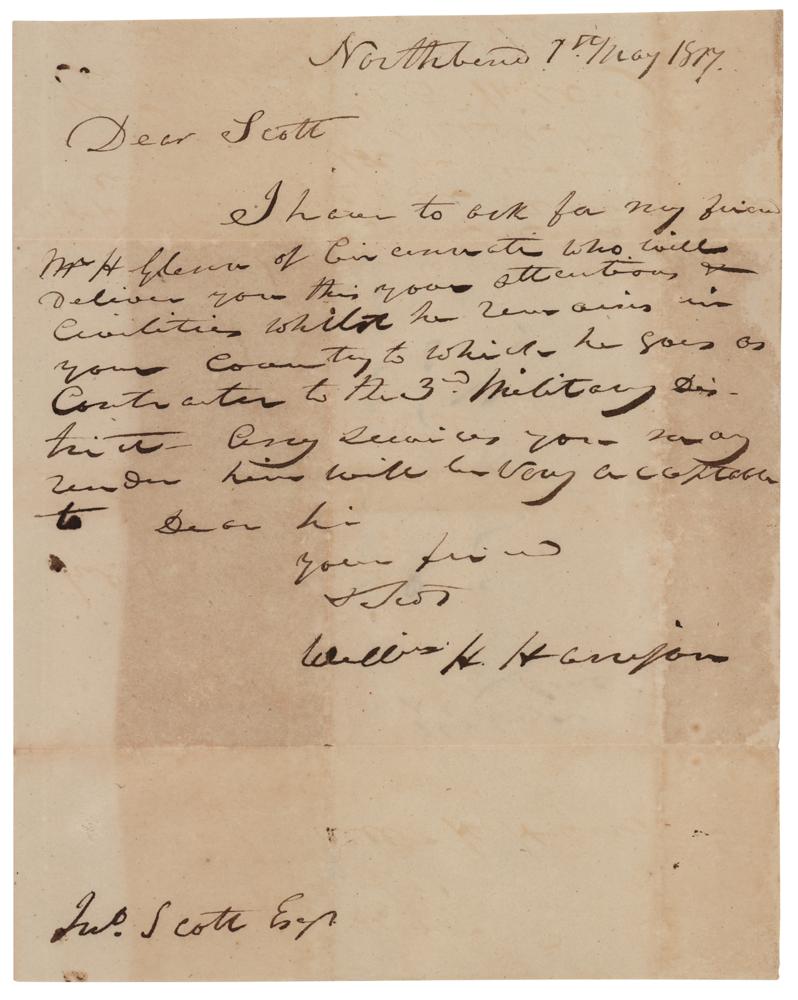 Northbend 7th May 1817.
Dear Scott
I have to ask for my friend
Mr H Glenn of Cincinnati who will
Deliver you this your attentions &
Civilities whilst he remains in
your Country to which he goes as
Contractor to the 3d. Military Dis-
trict - Any services you may
render him will be very acceptable
to Dear Sir
your friend
& Sevt
Willm. H. Harrison
Jno. Scott Esqr.